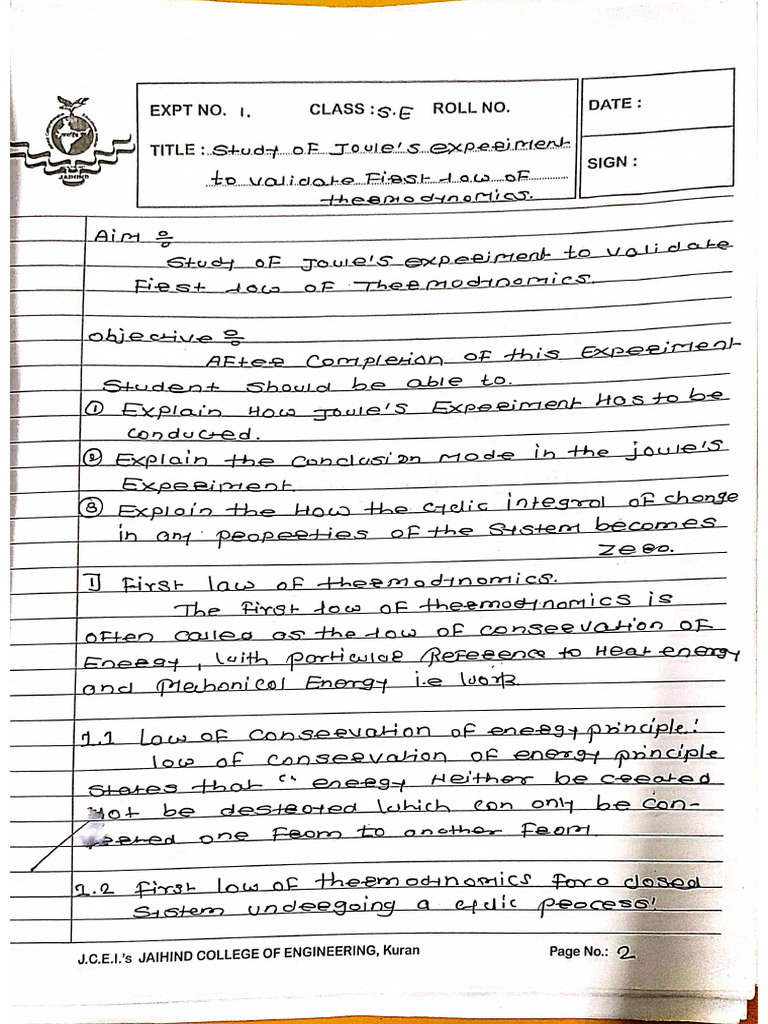 JAIHIND
EXPT NO. 1. CLASS : S.E ROLL NO.
DATE :
TITLE : Study of Joule's experiment
to validate First law of
thermodynomics.
SIGN :
Aim :
Study of Joule's experiment to validate
First law of Thermodynomics.
Objective :
After Completion of this Experiment
Student should be able to.
① Explain How Joule's Experiment Has to be
conducted.
② Explain the Conclusion mode in the joule's
Experiment.
③ Explain the How the cyclic integral of change
in any properties of the system becomes
zero.
1] First law of thermodynomics.
The first law of thermodynomics is
often called as the law of conservation of
Energy, with particular Reference to Heat energy
and Mechonical Energy i.e work
1.1 Law of conservation of energy principle!
law of conservation of energy principle
states that " energy Neither be created
Not be destroted which con only be con-
one from to another from
1.2 First law of thermodinomics for a closed
system undergoing a cyclic process!
J.C.E.I.'s JAIHIND COLLEGE OF ENGINEERING, Kuran
Page No.: 2